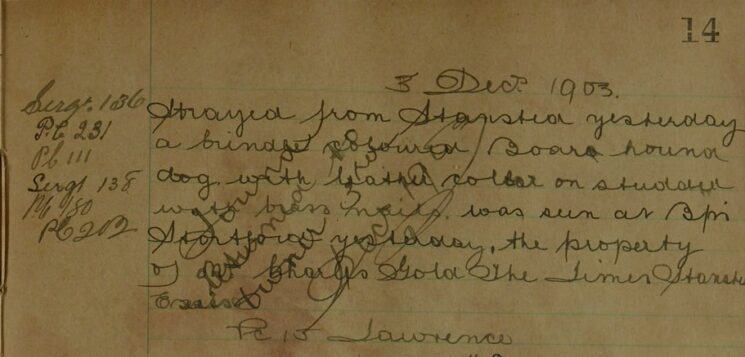 14
3 Dec. 1903.
Sergt. 136
P.C. 231
P.C. 111
Sergt 138
P.C. 180
P.C. 202
Strayed from Stansted yesterday
a brindle coloured Boar hound
dog with leather collar on studded
with brass nails. was seen at 3 pm
Stortford yesterday, the property
of Charles Gold The Limes Stansted
Essex
Pc 10 Lawrence